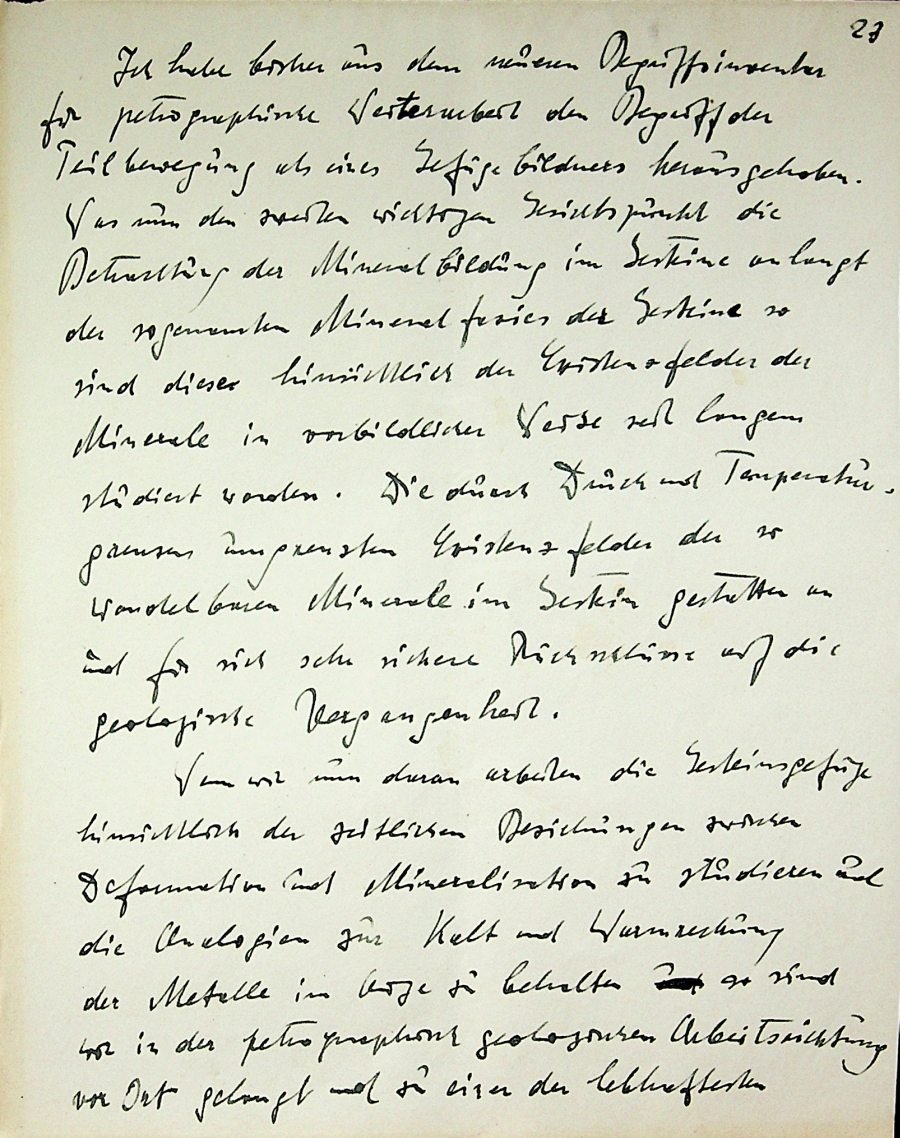 23
Ich habe bisher aus dem neueren Begriffsinventar
für petrographische Weiterarbeit den Begriff der
Teilbewegung als eines Gefügebildners herausgehoben.
Was nun den zweiten wichtigen Gesichtspunkt die
Betrachtung der Mineralbildung im Gesteine anlangt
der sogenannten Mineralfazies der Gesteine so
sind diese hinsichtlich der Existenzfelder der
Minerale in vorbildlicher Weise seit langem
studiert worden. Die durch Druck und Temperatur-
grenzen umgrenzten Existenzfelder der so
wandelbaren Minerale im Gestein gestatten an
und für sich sehr sichere Rückschlüsse auf die
geologische Vergangenheit.
Wenn wir nun daran arbeiten die Gesteinsgefüge
hinsichtlich der zeitlichen Beziehungen zwischen
Deformation und Mineralisation zu studieren und
die Analogien zur Kalt und Warmreckung
der Metalle im Auge zu behalten so sind
wir in der petrographisch geologischen Arbeitsrichtung
vor Ort gelangt und zu einer der lebhaftesten